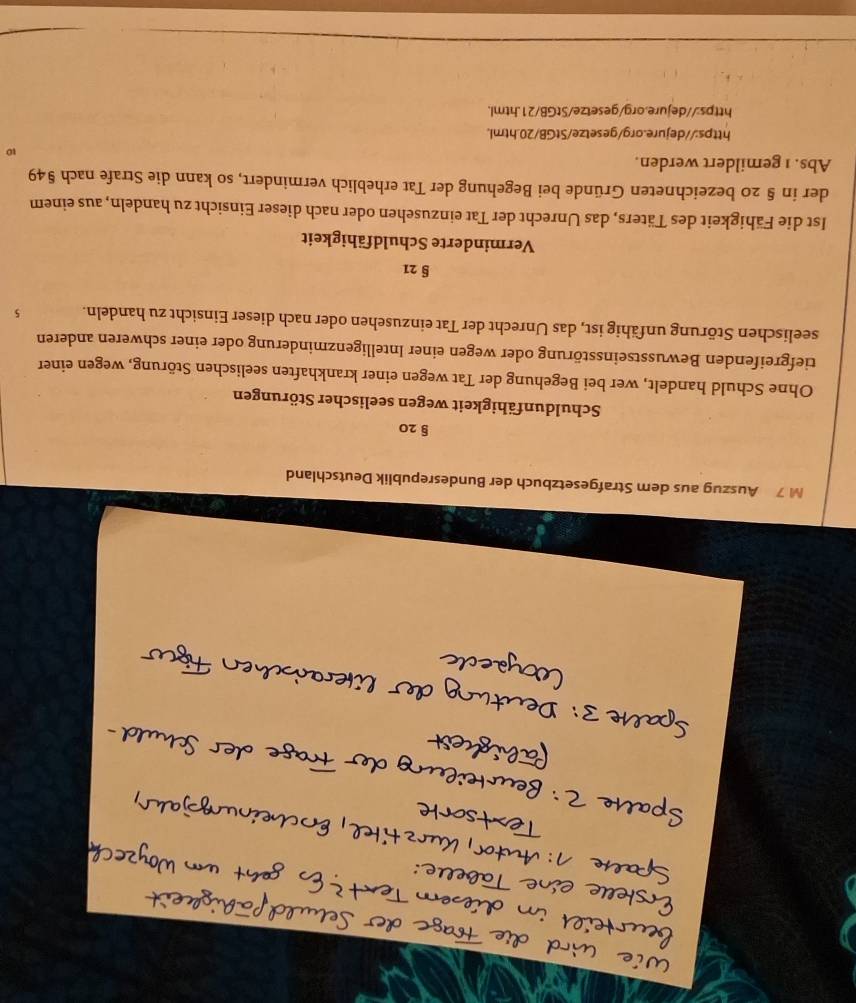 Wie wird die Frage der Schuldfähigkeit
beurteilt in diesem Text? Es geht um Woyzeck
Erstelle eine Tabelle:
Spalte 1: Autor, Kurztitel, Erscheinungsjahr,
Textsorte
Spalte 2: Beurteilung der Frage der Schuld-
fähigkeit
Spalte 3: Deutung der literarischen Figur
Woyzeck
M 7 Auszug aus dem Strafgesetzbuch der Bundesrepublik Deutschland
§ 20
Schuldunfähigkeit wegen seelischer Störungen
Ohne Schuld handelt, wer bei Begehung der Tat wegen einer krankhaften seelischen Störung, wegen einer
tiefgreifenden Bewusstseinsstörung oder wegen einer Intelligenzminderung oder einer schweren anderen
seelischen Störung unfähig ist, das Unrecht der Tat einzusehen oder nach dieser Einsicht zu handeln. 5
§ 21
Verminderte Schuldfähigkeit
Ist die Fähigkeit des Täters, das Unrecht der Tat einzusehen oder nach dieser Einsicht zu handeln, aus einem
der in § 20 bezeichneten Gründe bei Begehung der Tat erheblich vermindert, so kann die Strafe nach § 49
Abs. 1 gemildert werden. 10
https://dejure.org/gesetze/StGB/20.html.
https://dejure.org/gesetze/StGB/21.html.